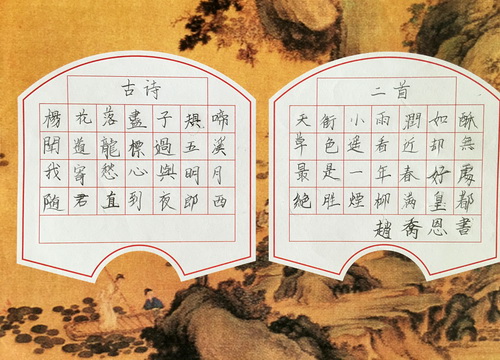 古诗
楊花落盡子規啼
聞道龍標過五溪
我寄愁心與明月
随君直到夜郎西
二首
天街小雨潤如酥
草色遥看近却無
最是一年春好處
絶胜煙柳满皇都
趙喬恩書